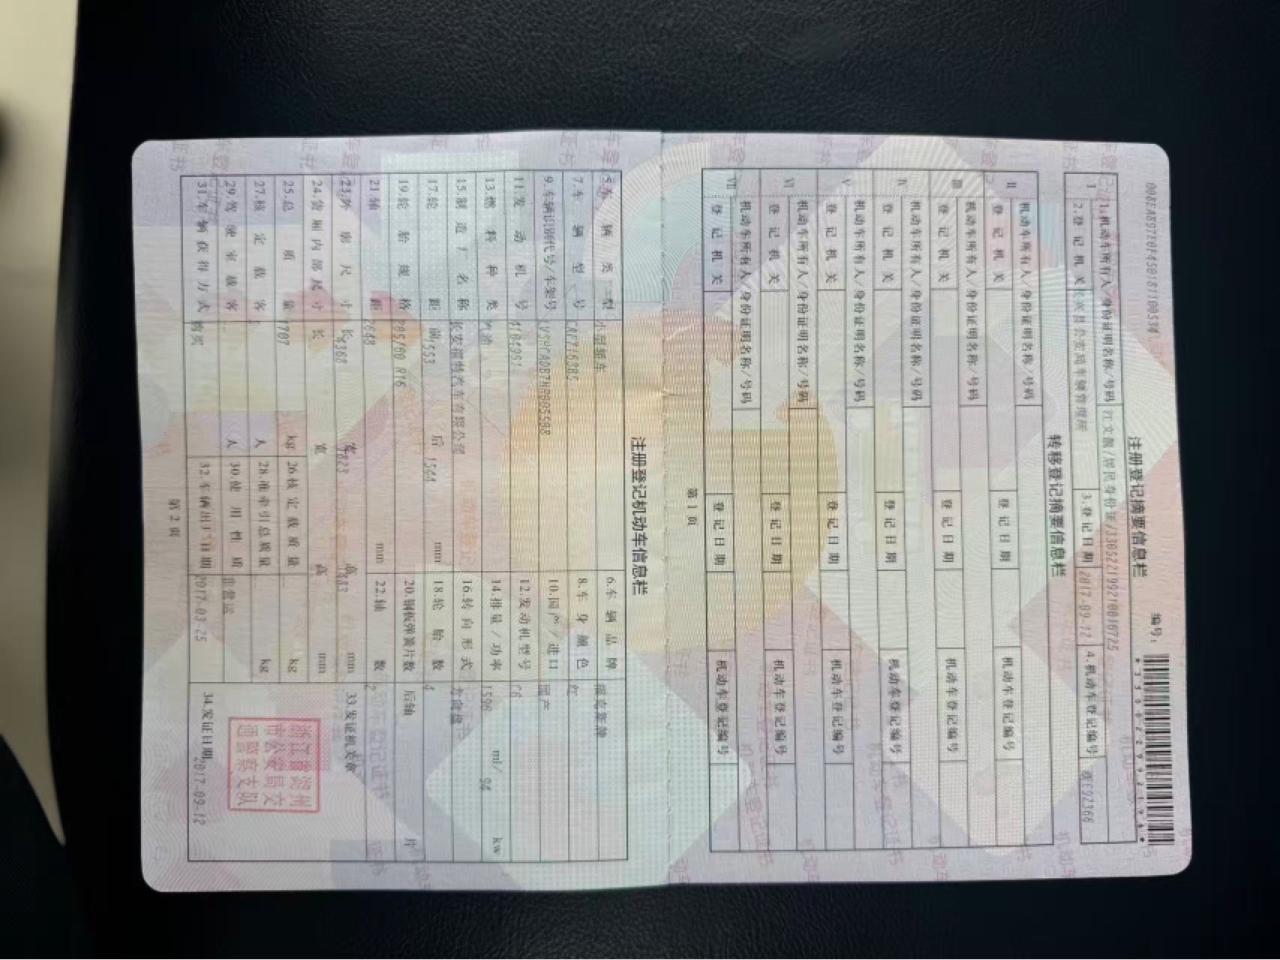 注册登记摘要信息栏
编号:
1.机动车所有人/身份证明名称/号码
2.登记机关 长兴县公安局车辆管理所 3.登记日期 2017-09-12 4.机动车登记编号
转移登记摘要信息栏
II 机动车所有人/身份证明名称/号码
登记机关 登记日期 机动车登记编号
III 机动车所有人/身份证明名称/号码
登记机关 登记日期 机动车登记编号
IV 机动车所有人/身份证明名称/号码
登记机关 登记日期 机动车登记编号
V 机动车所有人/身份证明名称/号码
登记机关 登记日期 机动车登记编号
VI 机动车所有人/身份证明名称/号码
登记机关 登记日期 机动车登记编号
VII 机动车所有人/身份证明名称/号码
登记机关 登记日期 机动车登记编号
第1页
注册登记机动车信息栏
5.车辆类型 小型轿车 6.车辆品牌 福克斯牌
7.车辆型号 8.车身颜色 红
9.车辆识别代号/车架号 10.国产/进口 国产
11.发动机号 12.发动机型号
13.燃料种类 汽油 14.排量/功率 ml/ kw
15.制造厂名称 长安福特汽车有限公司 16.转向形式 方向盘
17.轮距 前1553 后 1544 mm 18.轮胎数 4
19.轮胎规格 205/60 R16 20.钢板弹簧片数 后轴 片
21.轴距 2648 mm 22.轴数 2
23.外廓尺寸 长4368 宽1823 高1483 mm 33.发证机关章
24.货厢内部尺寸 长 宽 高 mm
25.总质量 1707 kg 26.核定载质量 kg
27.核定载客 人 28.准牵引总质量 kg
29.驾驶室载客 人 30.使用性质 非营运
31.车辆获得方式 购买 32.车辆出厂日期 2017-03-25 34.发证日期 2017-09-12
浙江省湖州
市公安局交
通警察支队
第2页